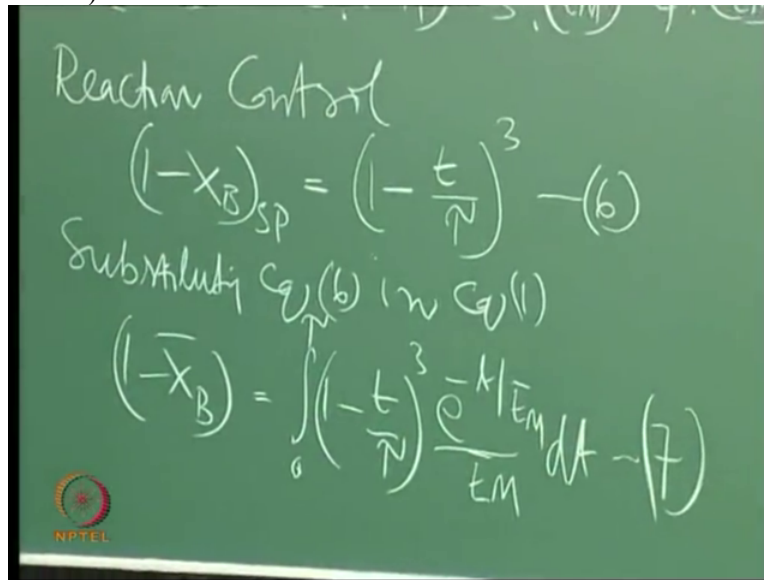 Reaction Control
(1-X_B)_SP = (1 - t/τ)^3 - (6)
Substituting Eq (6) in Eq (1)
(1-X̄_B) = ∫_0^τ (1 - t/τ)^3 e^{-t/t̄_M}/t̄_M dt - (7)
NPTEL